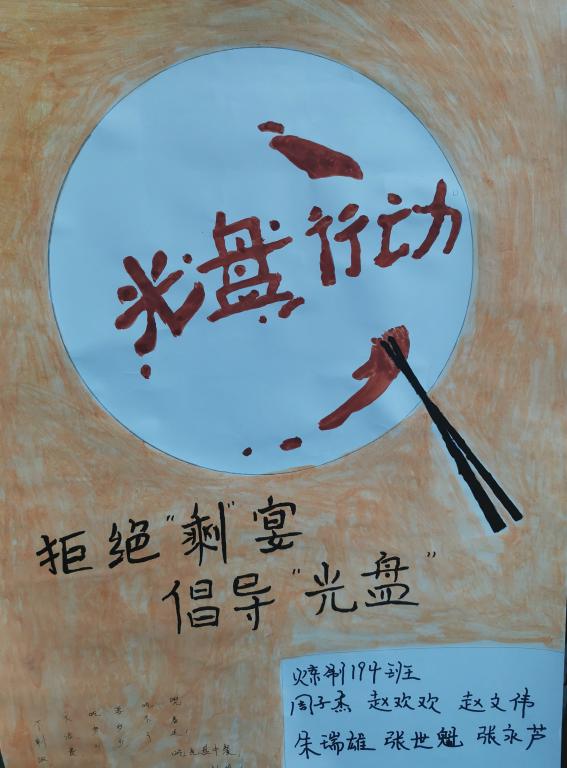 光盘行动
拒绝"剩"宴
倡导"光盘"
焊制194班
周子杰 赵欢欢 赵文伟
朱瑞雄 张世魁 张永芦